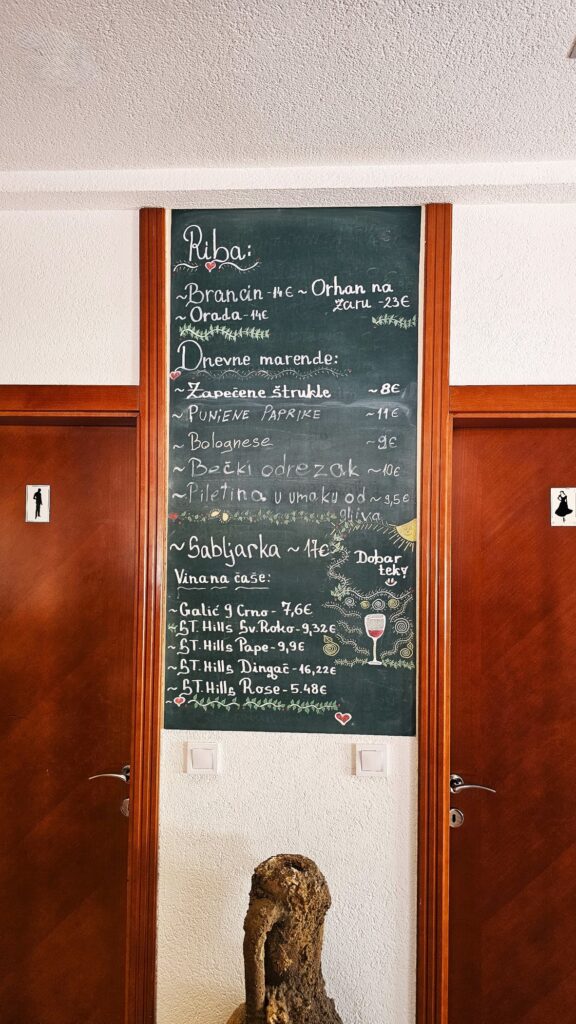 Riba:
~Brancin -14€ ~ Orhan na
žaru -23€
~ Orada -14€
Dnevne marende:
~ Zapečene štrukle ~8€
~ PUNJENE PAPRIKE ~11€
~ Bolognese ~9€
~ Bečki odrezak ~10€
~ Piletina u umaku od ~9,5€
gljiva
~ Sabljarka ~ 17€
Dobar
tek
Vina na čaše:
~ Galić 9 Crno - 7,6€
~ ST. Hills Sv. Roko - 9,32€
~ ST. Hills Pape - 9,9€
~ ST. Hills Dingač - 16,22€
~ ST. Hills Rose - 5.48€